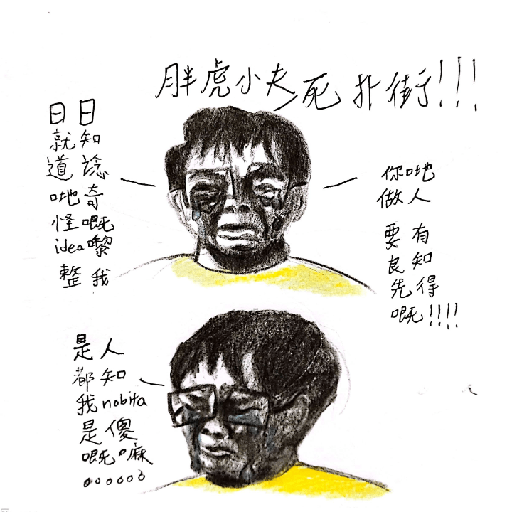 胖虎小夫死扑街!!!
日日
就知
道諗
啲奇
怪嘅
idea嚟
整我
你哋
做人
要有
良知
先得
嘅!!!!
是人
都知
我nobita
是傻
嘅嘛
。。。。。。